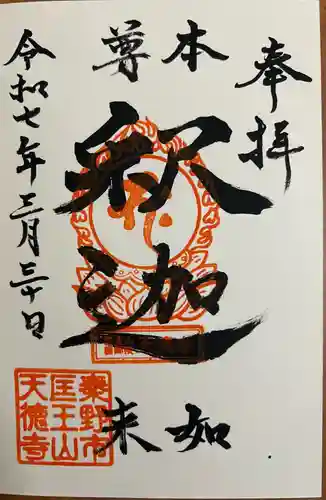 奉拝
本尊
釈迦
如来
令和七年三月三十日
秦野市
匡王山
天徳寺